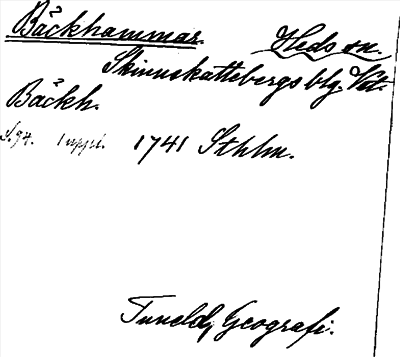 Bäckhammar. Heds sn.
Skinnskattebergs blg. Vstm.
Bäckh.
S. 94. 1 uppl. 1741 Sthlm.
Tuneld, Geografi.